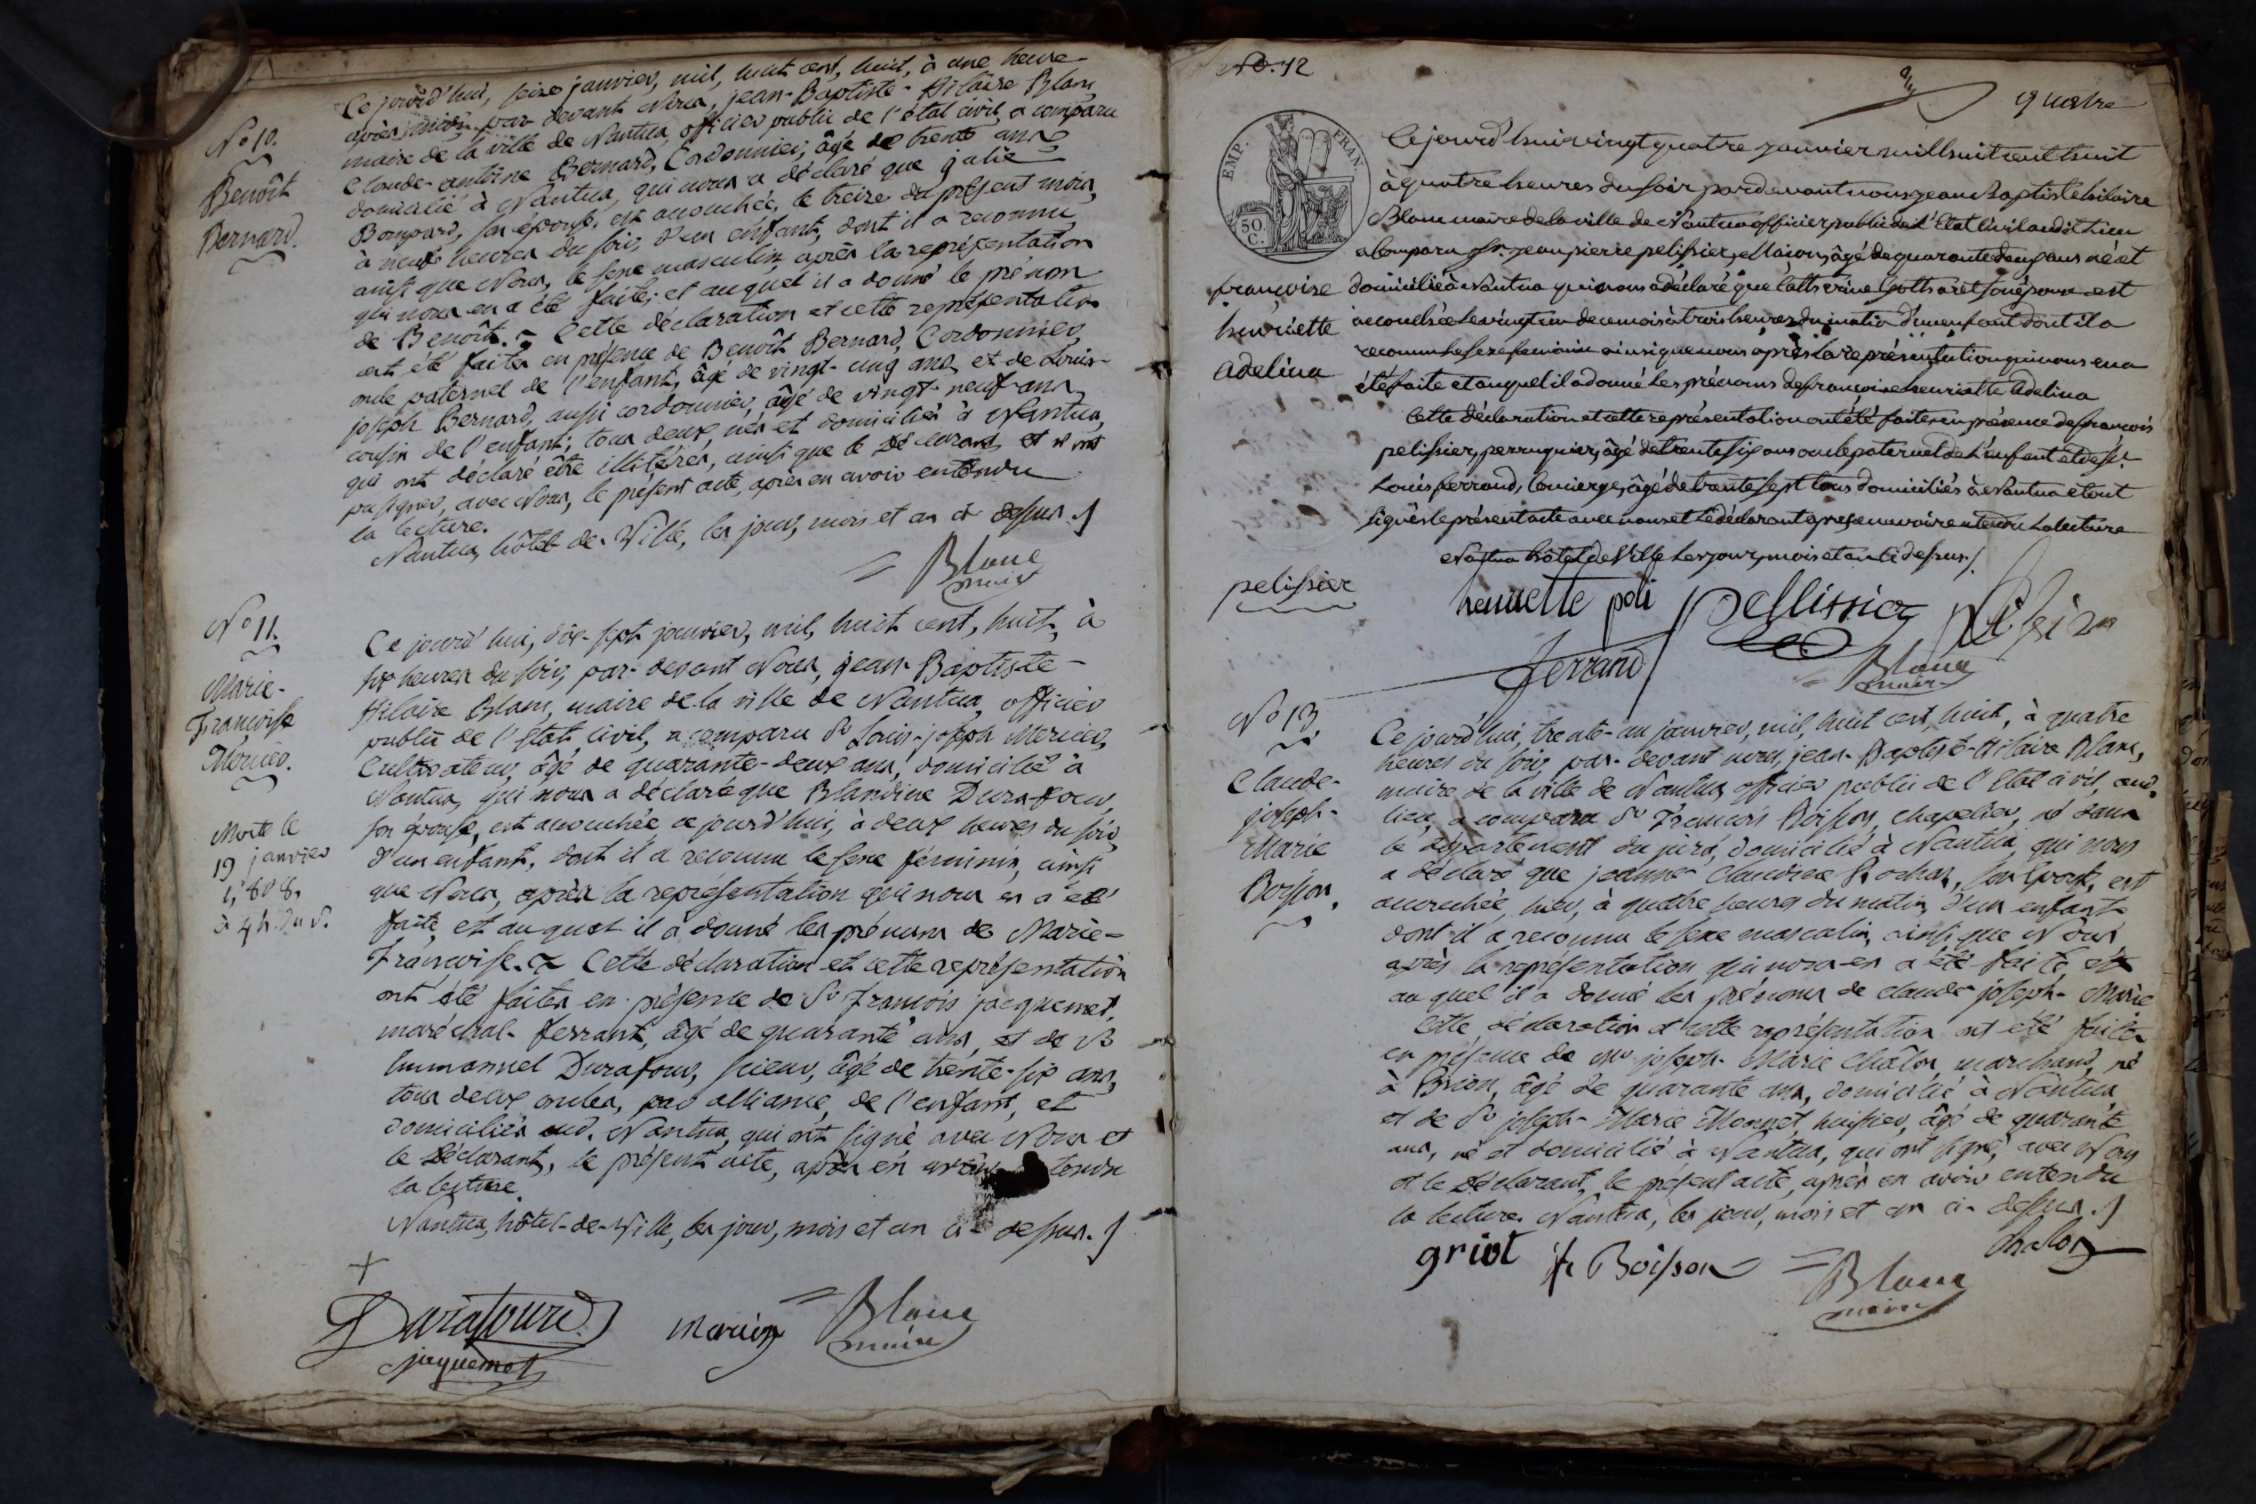 Ce jourd'hui, seize janvier, mil, huit cent, huit, à une heure
après midi, par devant Nous, jean-Baptiste-Hilaire Blanc,
maire de la ville de Nantua, officier public de l'état civil, a comparu
Claude-antoine Bernard, Cordonnier, âgé de trente ans
domicilié à Nantua, qui nous a déclaré que julie
Bompard, son épouse, est accouchée, le treize du présent mois,
à neuf heures du soir, d'un enfant, dont il a reconnu
ainsi que Nous, le sexe masculin, après la représentation
qui nous en a été faite; et auquel il a donné le prénom
de Benoît. Cette déclaration et cette représentation
ont été faites en présence de Benoît Bernard, Cordonnier,
oncle paternel de l'enfant, âgé de vingt-cinq ans, et de Louis-
joseph Bernard, aussi cordonnier, âgé de vingt-neuf ans
cousin de l'enfant; tous deux, nés et domiciliés à Nantua,
qui ont déclaré être illitérés, ainsi que le déclarant et n'ont
pu signer, avec Nous, le présent acte, après en avoir entendu
la lecture.
Nantua, hôtel-de-Ville, les jour, mois et an ci dessus.
Blanc
maire
No 10.
Benoît
Bernard.
No 11.
Marie-
Françoise
Mercier.
Morte le
19 janvier
1,808,
à 4 h. du S.
Ce jourd'hui, dix-sept janvier, mil, huit cent, huit, à
six heures du soir, par-devant Nous, jean-Baptiste-
Hilaire Blanc, maire de la ville de Nantua, officier
public de l'état civil, a comparu Sr Louis-joseph Mercier,
Cultivateur, âgé de quarante-deux ans, domicilié à
Nantua, qui nous a déclaré que Blandine Durafour,
son épouse, est accouchée, ce jourd'hui, à deux heures du soir,
d'un enfant, dont il a reconnu le sexe féminin, ainsi
que Nous, après la représentation qui nous en a été
faite, et auquel il a donné les prénoms de Marie-
Françoise. Cette déclaration et cette représentation
ont été faites en présence de Sr François jacquemet,
maréchal-ferrant, âgé de quarante ans, et de Sr
Emmanuel Durafour, scieur, âgé de trente-six ans,
tous deux oncles, par alliance, de l'enfant, et
domiciliés aud. Nantua, qui ont signé avec Nous et
le déclarant, le présent acte, après en avoir entendu
la lecture.
Nantua, hôtel-de-Ville, les jour, mois et an ci-dessus.
Durafour
jaquemet
Blanc
maire
No. 12
quatre
EMP. FRAN
50. C.
Ce jourd'hui vingt quatre janvier mil huit cent huit
à quatre heures du soir par devant nous jean Baptiste hilaire
Blanc maire de la ville de Nantua officier public de l'Etat Civil audit Lieu
a Comparu Sr. jean pierre pelissier, Maçon, âgé de quarante deux ans né et
domicilié à Nantua qui nous a déclaré que Catherine son épouse est
accouchée le vingt un de ce mois à trois heures du matin d'un enfant dont il a
reconnu le sexe féminin ainsi que nous après la représentation qui nous en a
été faite et auquel il a donné les prénoms de françoise henriette adelina
Cette déclaration et cette représentation ont été faites en présence de françois
pelissier, perruquier, âgé de trente six ans oncle paternel de l'enfant et de Sr.
Louis ferrand, Concierge, âgé de trente sept tous domiciliés à Nantua et ont
signés le présent acte avec nous et le déclarant après en avoir entendu la lecture
Nantua hôtel de Ville les jour, mois et an ci dessus.
françoise
henriette
adelina
pelissier
Pellissier
ferrand
Blanc
maire
No 13.
Claude-
joseph-
Marie
Boisson.
Ce jourd'hui, trente-un janvier, mil, huit cent, huit, à quatre
heures du soir, par-devant nous, jean-Baptiste-Hilaire Blanc,
maire de la ville de Nantua, officier public de l'Etat civil, aud.
lieu, a comparu Sr François Boisson, chapelier, né dans
le département du jura, domicilié à Nantua, qui nous
a déclaré que jeanne Claudine son épouse, est
accouchée, hier, à quatre heures du matin, d'un enfant
dont il a reconnu le sexe masculin, ainsi que Nous
après la représentation qui nous en a été faite, et
auquel il a donné les prénoms de claude-joseph-Marie
Cette déclaration et cette représentation ont été faites
en présence de Mr joseph-Marie Châlon, marchand, né
à Brion, âgé de quarante ans, domicilié à Nantua,
et de Sr joseph-Marie Monnet, huissier, âgé de quarante
ans, né et domicilié à Nantua, qui ont signé, avec Nous
et le déclarant, le présent acte, après en avoir entendu
la lecture. Nantua, les jour, mois et an ci-dessus.
griot fr Boisson
Chalon
Blanc
maire